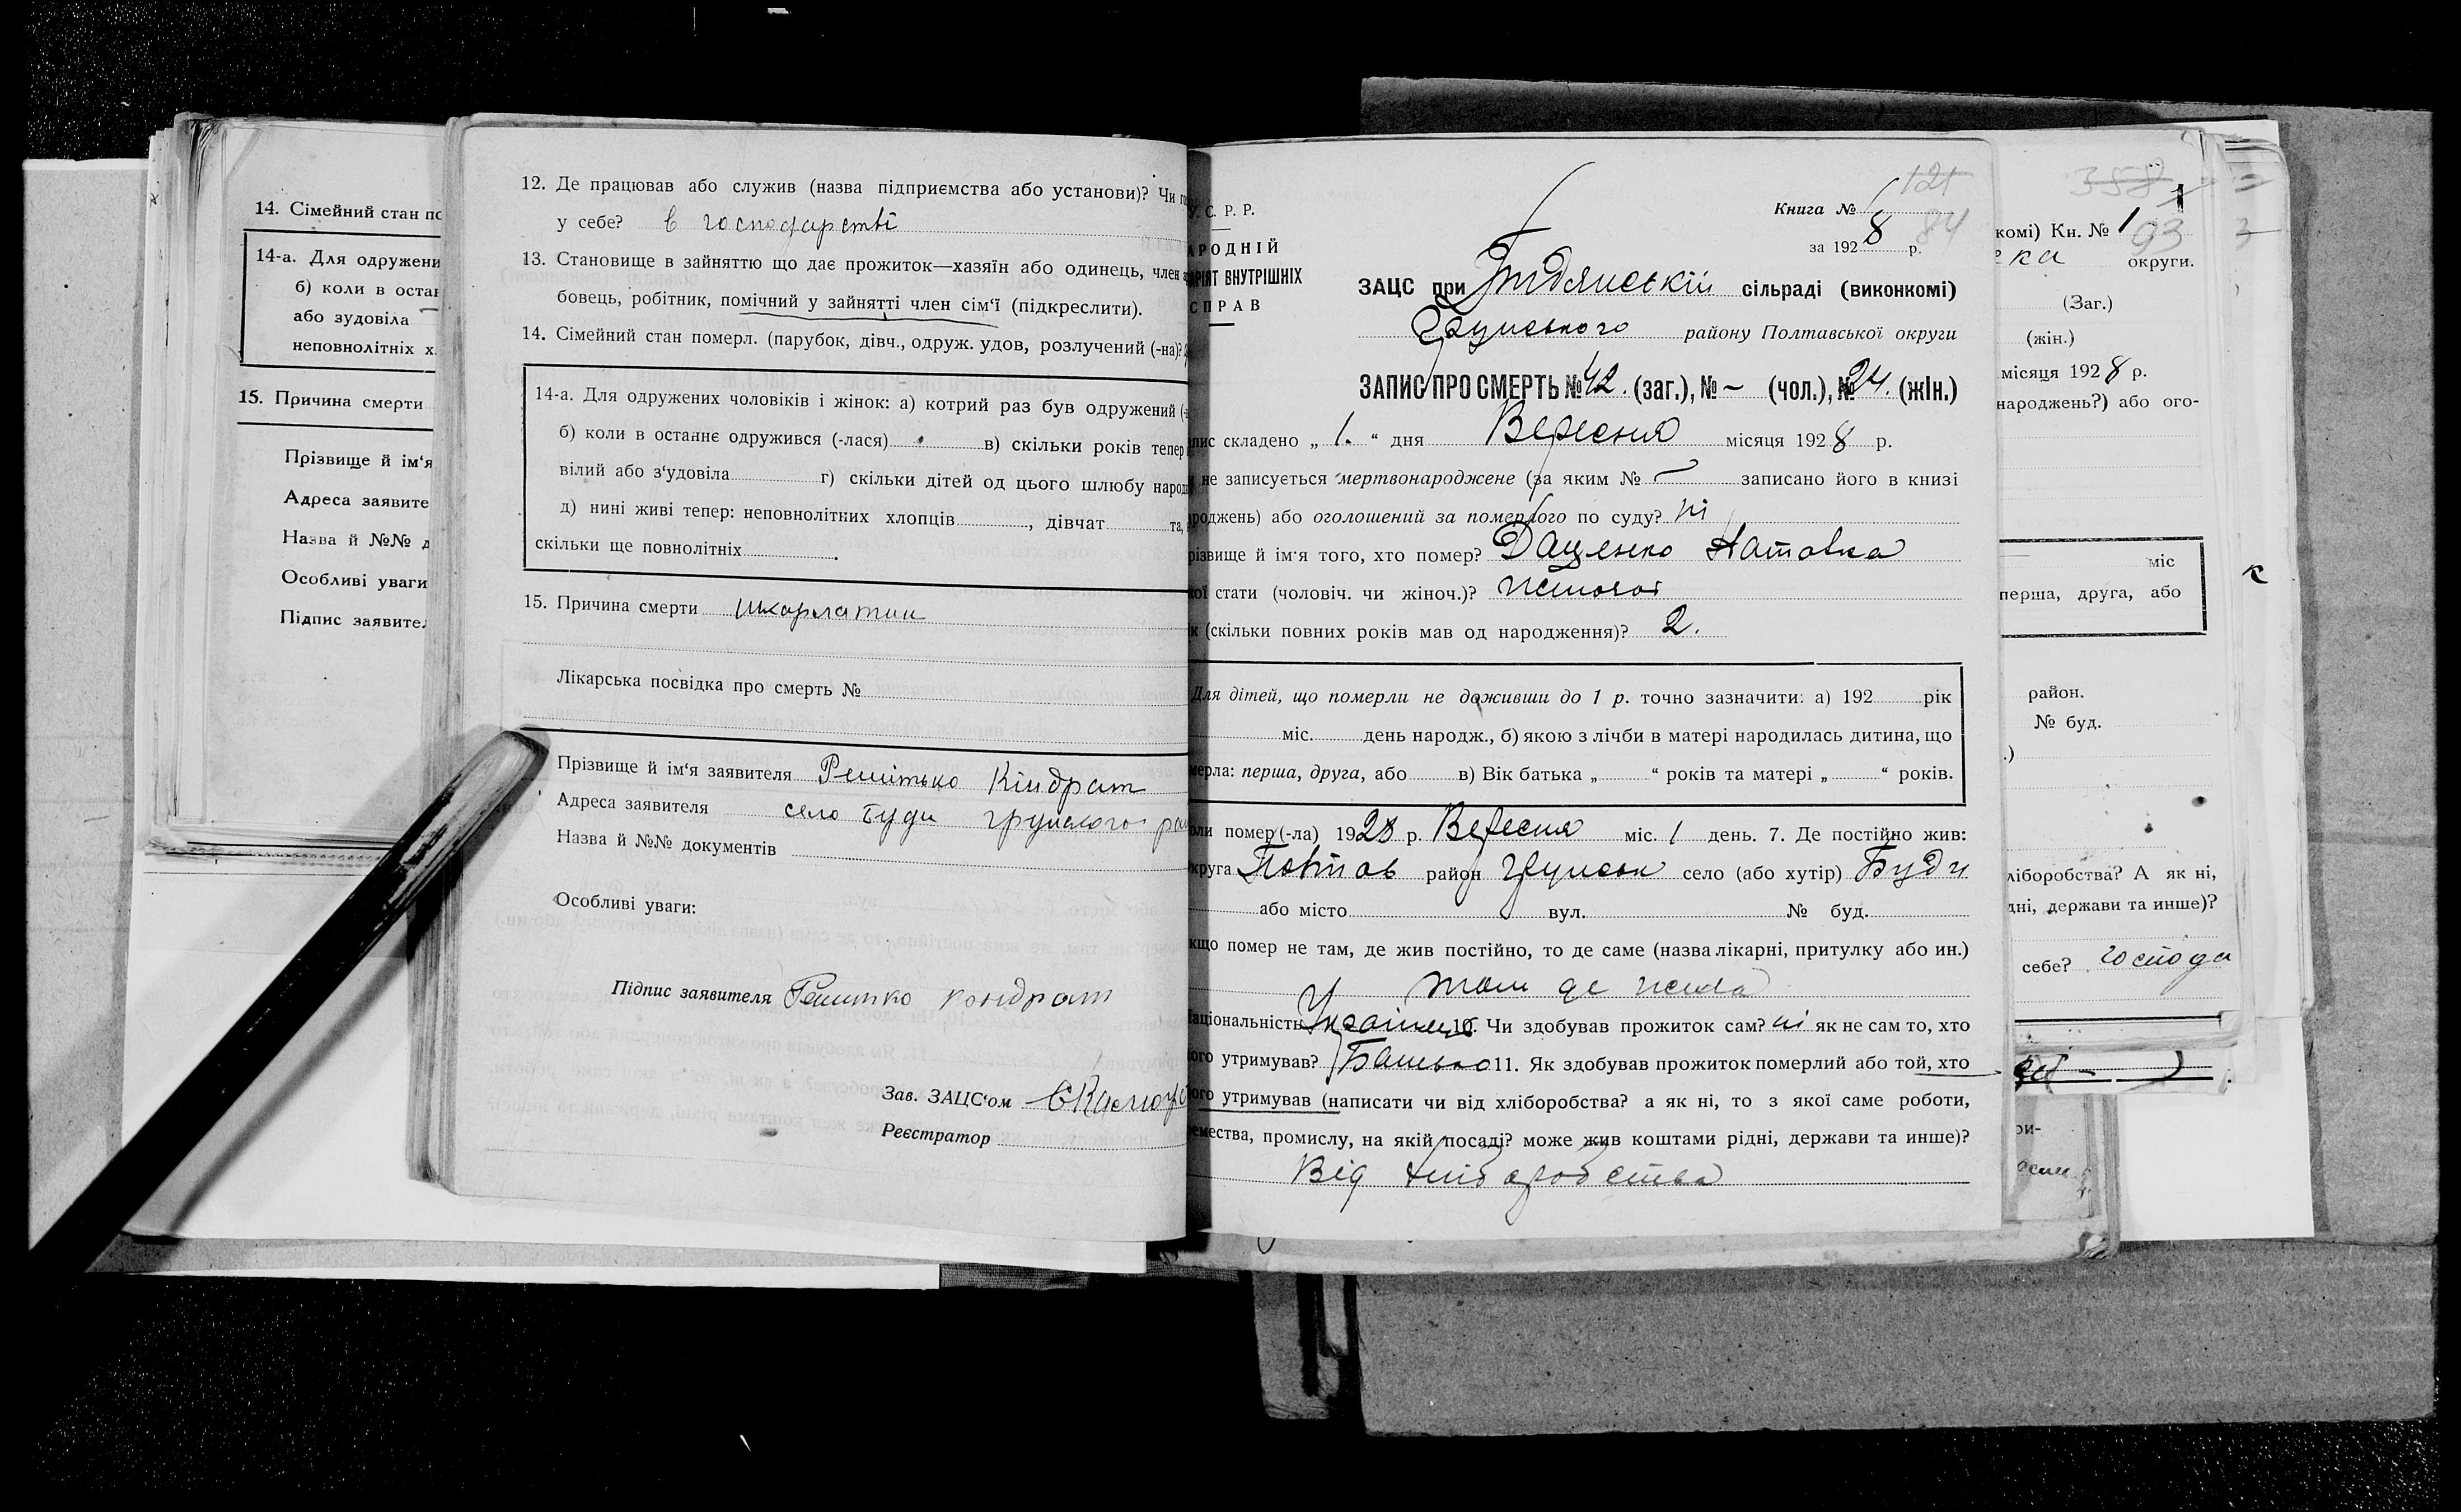 14. Сімейний стан по
14-а. Для одружени
б) коли в остан
або зудовіла
неповнолітніх х.
15. Причина смерти
Прізвище й ім'я
Адреса заявите
Назва й №№ д
Особливі уваги
Підпис заявите
12. Де працював або служив (назва підприємства або установи)? Чи г
у себе? в господарстві
13. Становище в зайняттю що дає прожиток—хазяїн або одинець, член а
бовець, робітник, помічний у зайнятті член сім'ї (підкреслити).
14. Сімейний стан померл. (парубок, дівч., одруж. удов, розлучений (-на)?
14-а. Для одружених чоловіків і жінок: а) котрий раз був одружений (-
б) коли в останнє одружився (-лася) в) скільки років тепер
вілий або з'удовіла г) скільки дітей од цього шлюбу народ
д) нині живі тепер: неповнолітних хлопців , дівчат та,
скільки ще повнолітніх .
15. Причина смерти шкарлатин
Лікарська посвідка про смерть №
Прізвище й ім'я заявителя Решітько Кіндрат
Адреса заявителя село Буди грунського ра
Назва й №№ документів
Особливі уваги:
Підпис заявителя Решитко кондрат
Зав. ЗАЦС'ом
Реєстратор
У. С. Р. Р.
АРОДНІЙ
АРІЯТ ВНУТРІШНІХ
СПРАВ
121
Книга № 84
за 1928 р.
ЗАЦС при сільраді (виконкомі)
Грунського району Полтавської округи
ЗАПИС ПРО СМЕРТЬ № 42. (заг.), № – (чол.), № 24. (жін.)
пис складено „ 1. “ дня Вересня місяця 1928 р.
не записується мертвонароджене (за яким № – записано його в книзі
роджень) або оголошений за померлого по суду? ні
різвище й ім'я того, хто помер? Даценко Натовка
кої стати (чоловіч. чи жіноч.)? жіночої
ік (скільки повних років мав од народження)? 2.
Для дітей, що померли не доживши до 1 р. точно зазначити: а) 192 рік
міс. день народж., б) якою з лічби в матері народилась дитина, що
мерла: перша, друга, або в) Вік батька „ “ років та матері „ “ років.
оли помер (-ла) 1928 р. Вересня міс. 1 день. 7. Де постійно жив:
круга Полтав район Грунськ село (або хутір) Буди
або місто вул. № буд.
кщо помер не там, де жив постійно, то де саме (назва лікарні, притулку або ин.)
там де жила
аціональність Українець 10. Чи здобував прожиток сам? ні як не сам то, хто
ого утримував? Батько 11. Як здобував прожиток померлий або той, хто
ого утримував (написати чи від хліборобства? а як ні, то з якої саме роботи,
емества, промислу, на якій посаді? може жив коштами рідні, держави та инше)?
Від хліборобства
358
комі) Кн. № 1
93
ка округи.
(Заг.)
(жін.)
місяця 1928 р.
народжень?) або ого-
міс
перша, друга, або
район.
№ буд.
.)
ліборобства? А як ні,
дні, держави та инше)?
себе? господа
ри-